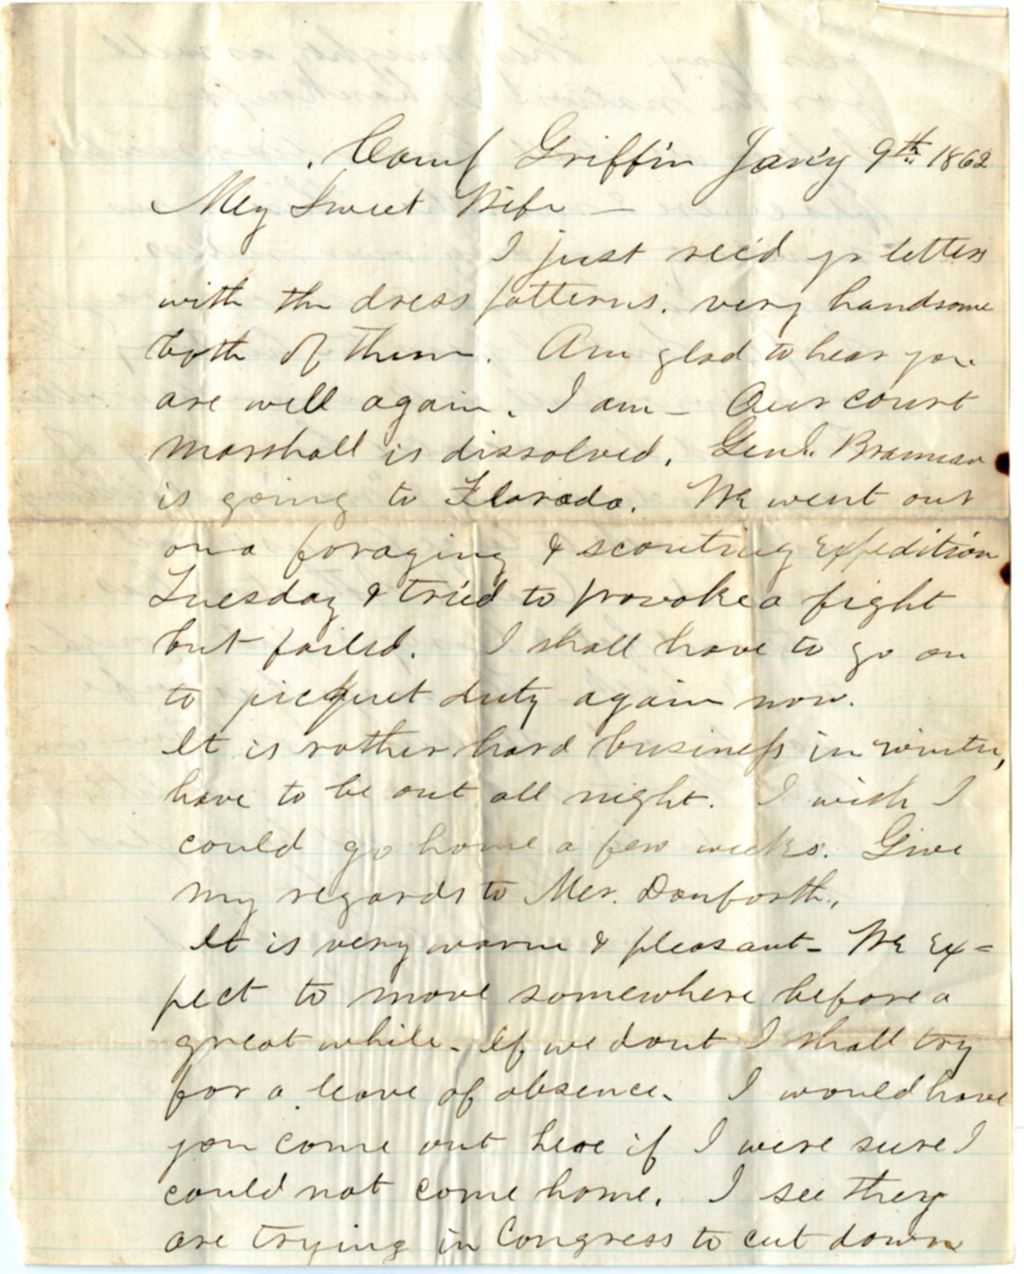 Camp Griffin Jan'y 9th 1862
My Sweet Wife —
I just rec'd yr letters
with the dress patterns. very handsome
both of them. Am glad to hear you
are well again. I am – Our court
marshall is dissolved. Genl. Brannan
is going to Florada. We went out
on a foraging & scouting expedition
Tuesday & tried to provoke a fight
but failed. I shall have to go on
to picquet duty again now.
It is rather hard business in winter,
have to be out all night. I wish I
could go home a few weeks. Give
my regards to Mer. Danforth.,
It is very warm & pleasant – We ex=
pect to move somewhere before a
great while. If we dont I shall try
for a leave of absence. I would have
you come out here if I were sure I
could not come home. I see they
are trying in Congress to cut down